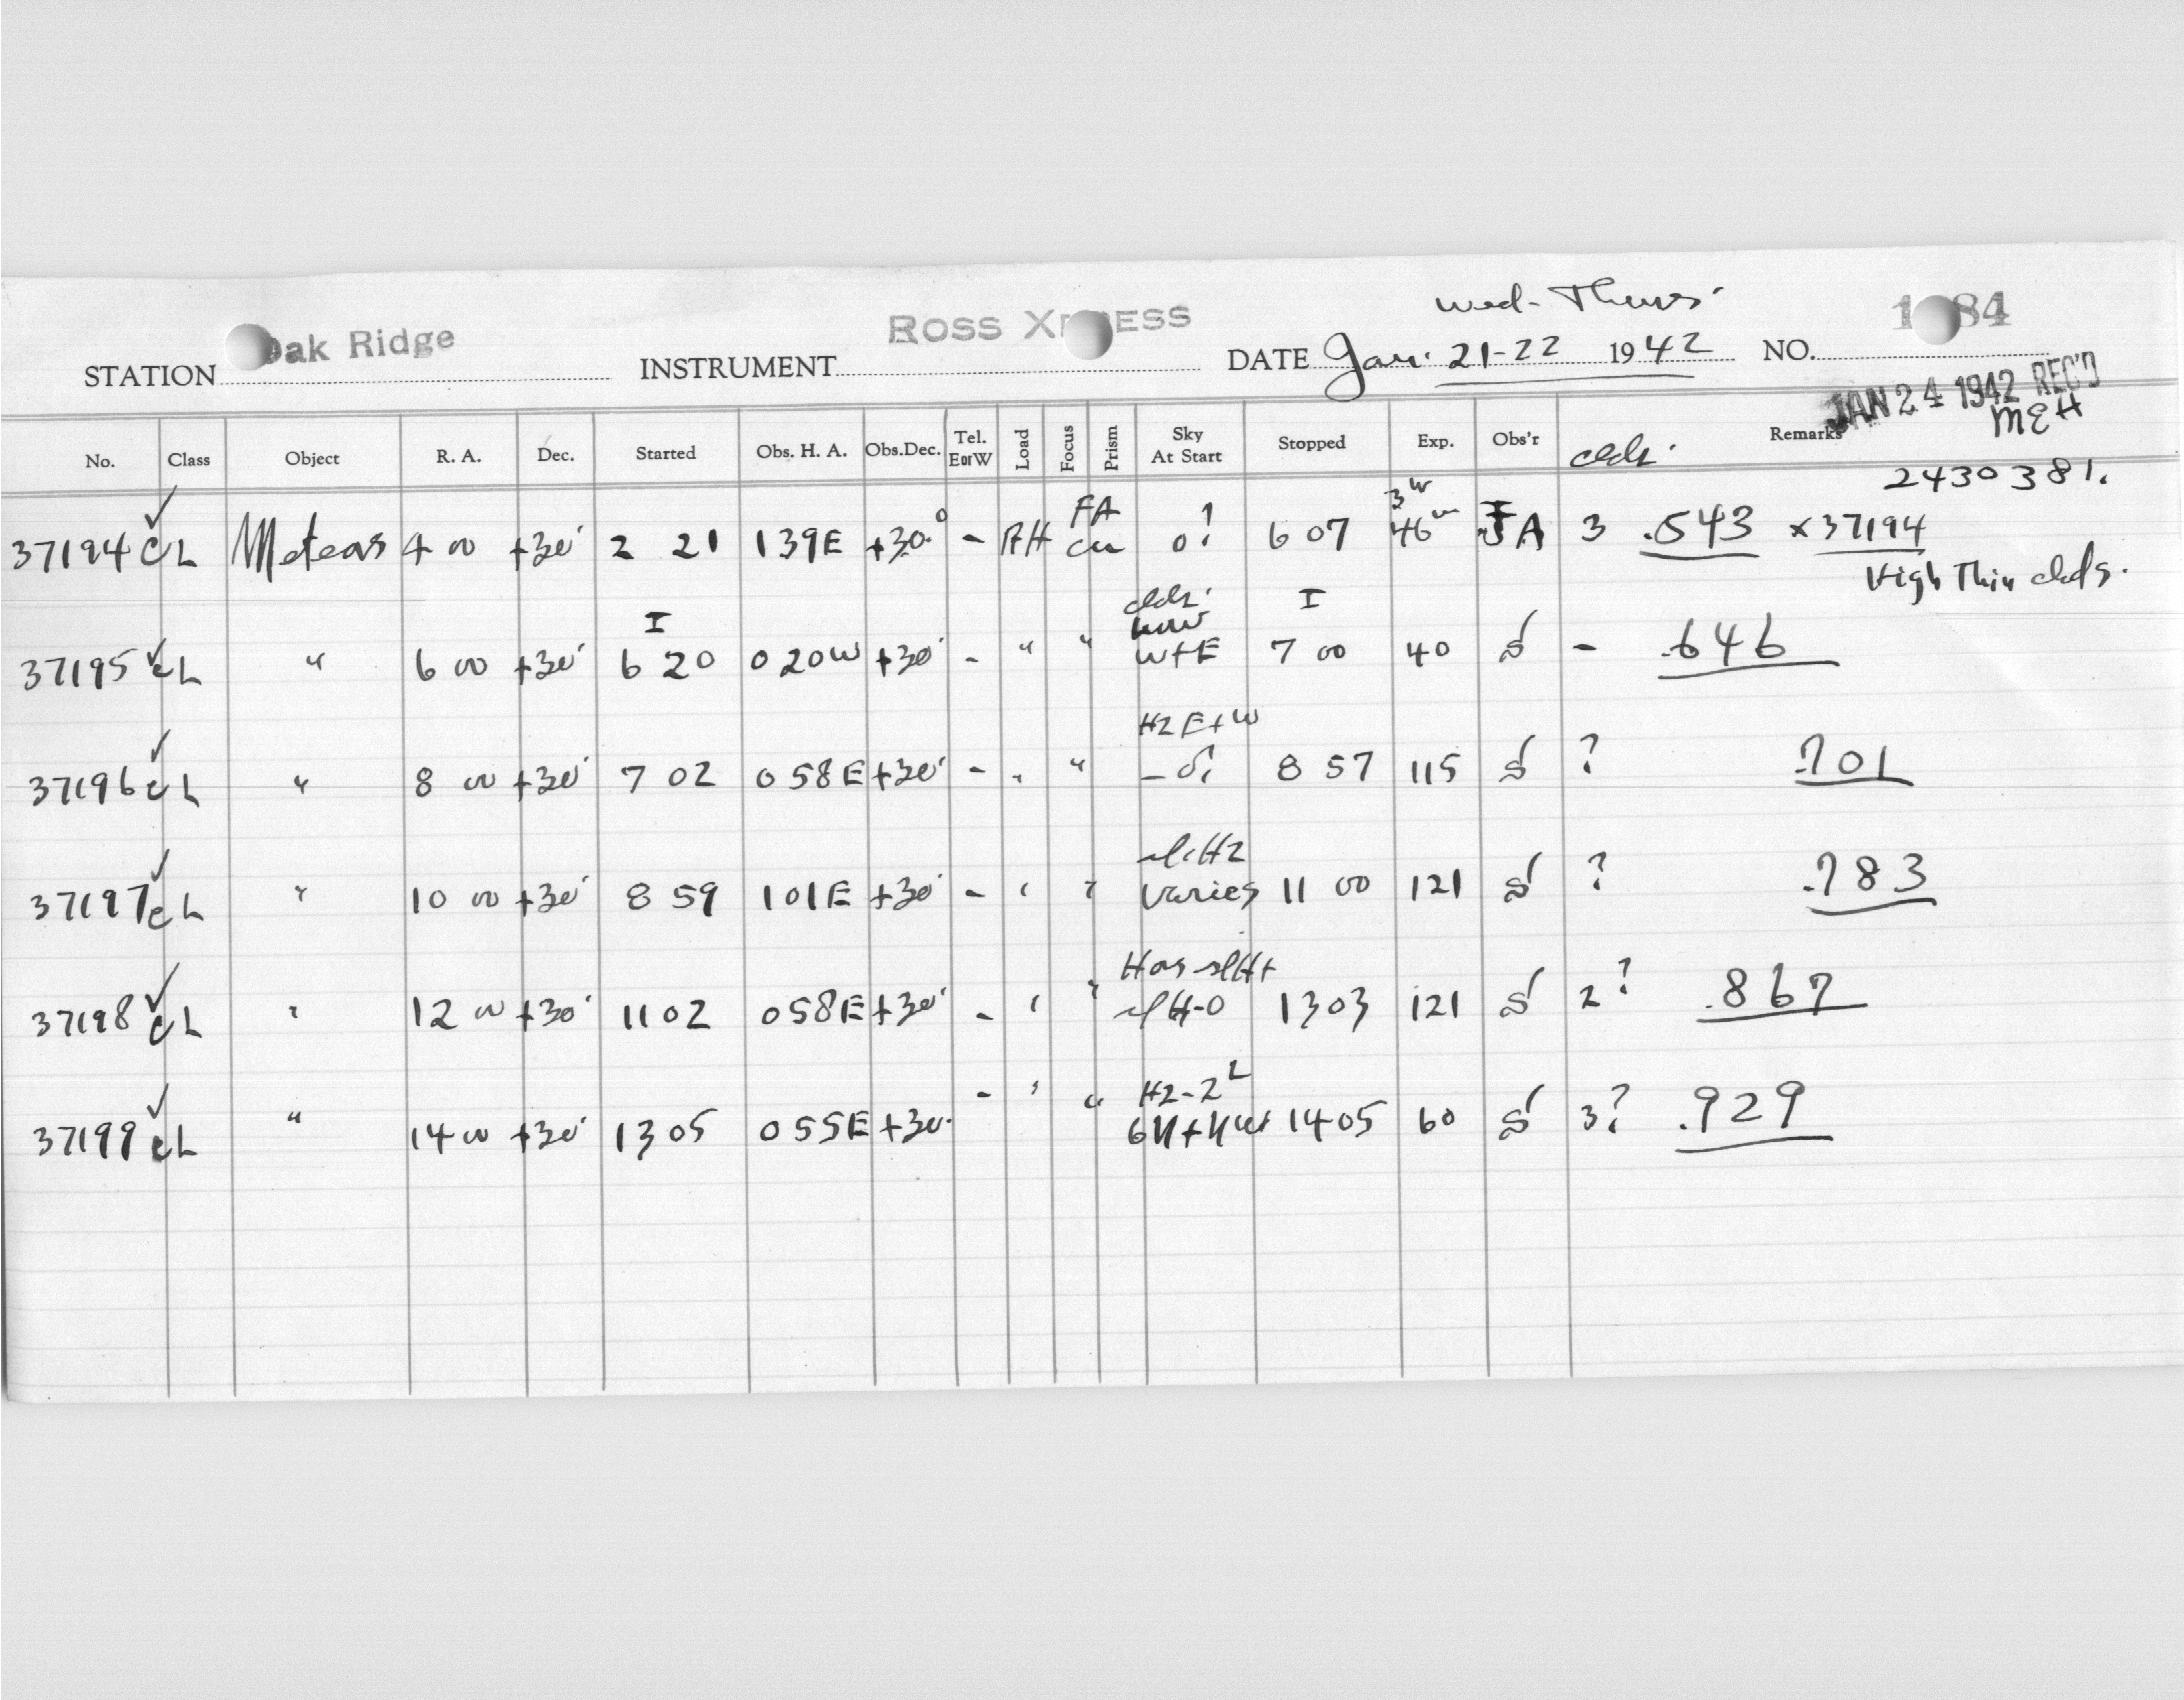 Wed - Thurs.
STATION Oak Ridge INSTRUMENT ROSS X ESS DATE Jan. 21-22 1942 NO. 1 84
JAN 24 1942 REC'D
MEH
No. Class Object R. A. Dec. Started Obs. H. A. Obs. Dec. Tel. E or W Load Focus Prism Sky At Start Stopped Exp. Obs'r clds. Remarks
2430381.
37194 ✓ CL Meteors 4 00 +30° 2 21 139E +30° - RH FA cu 0! 6 07 3h 46m JA 3 .543 x 37194
High Thin clds.
37195 ✓ CL " 6 00 +30° I 6 20 020W +30° - " " clds. W+E I 7 00 40 S - .646
37196 ✓ CL " 8 00 +30° 7 02 058E +30° - " " HZ E+W 8 57 115 S ? .701
37197 ✓ CL " 10 00 +30° 8 59 101E +30° - " " sl. HZ varies 11 00 121 S ? .783
37198 ✓ CL " 12 00 +30° 11 02 058E +30° - " " 13 03 121 S 2? .867
37199 ✓ CL " 14 00 +30° 13 05 055E +30° - " " HZ-2 14 05 60 S 3? .929